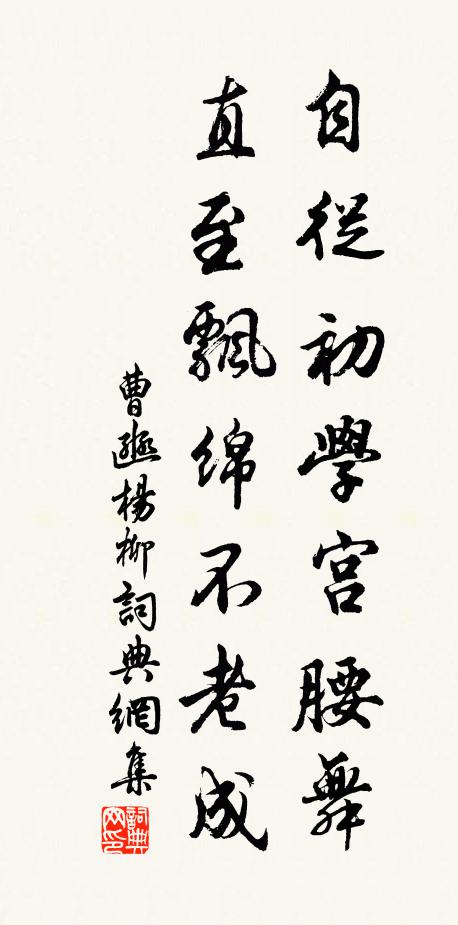 自從初學宮腰舞
直至飄綿不老成
曹邍楊柳詞典網集
詞典網印